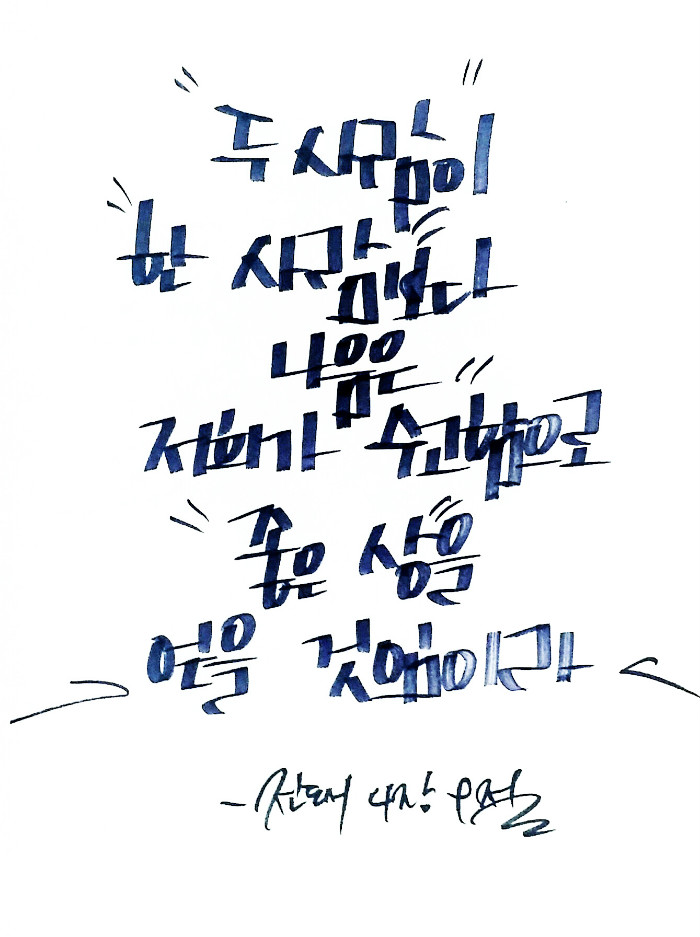 두 사람이
한 사람보다
나음은
저희가 수고함으로
좋은 상을
얻을 것임이라
- 전도서 4장 9절